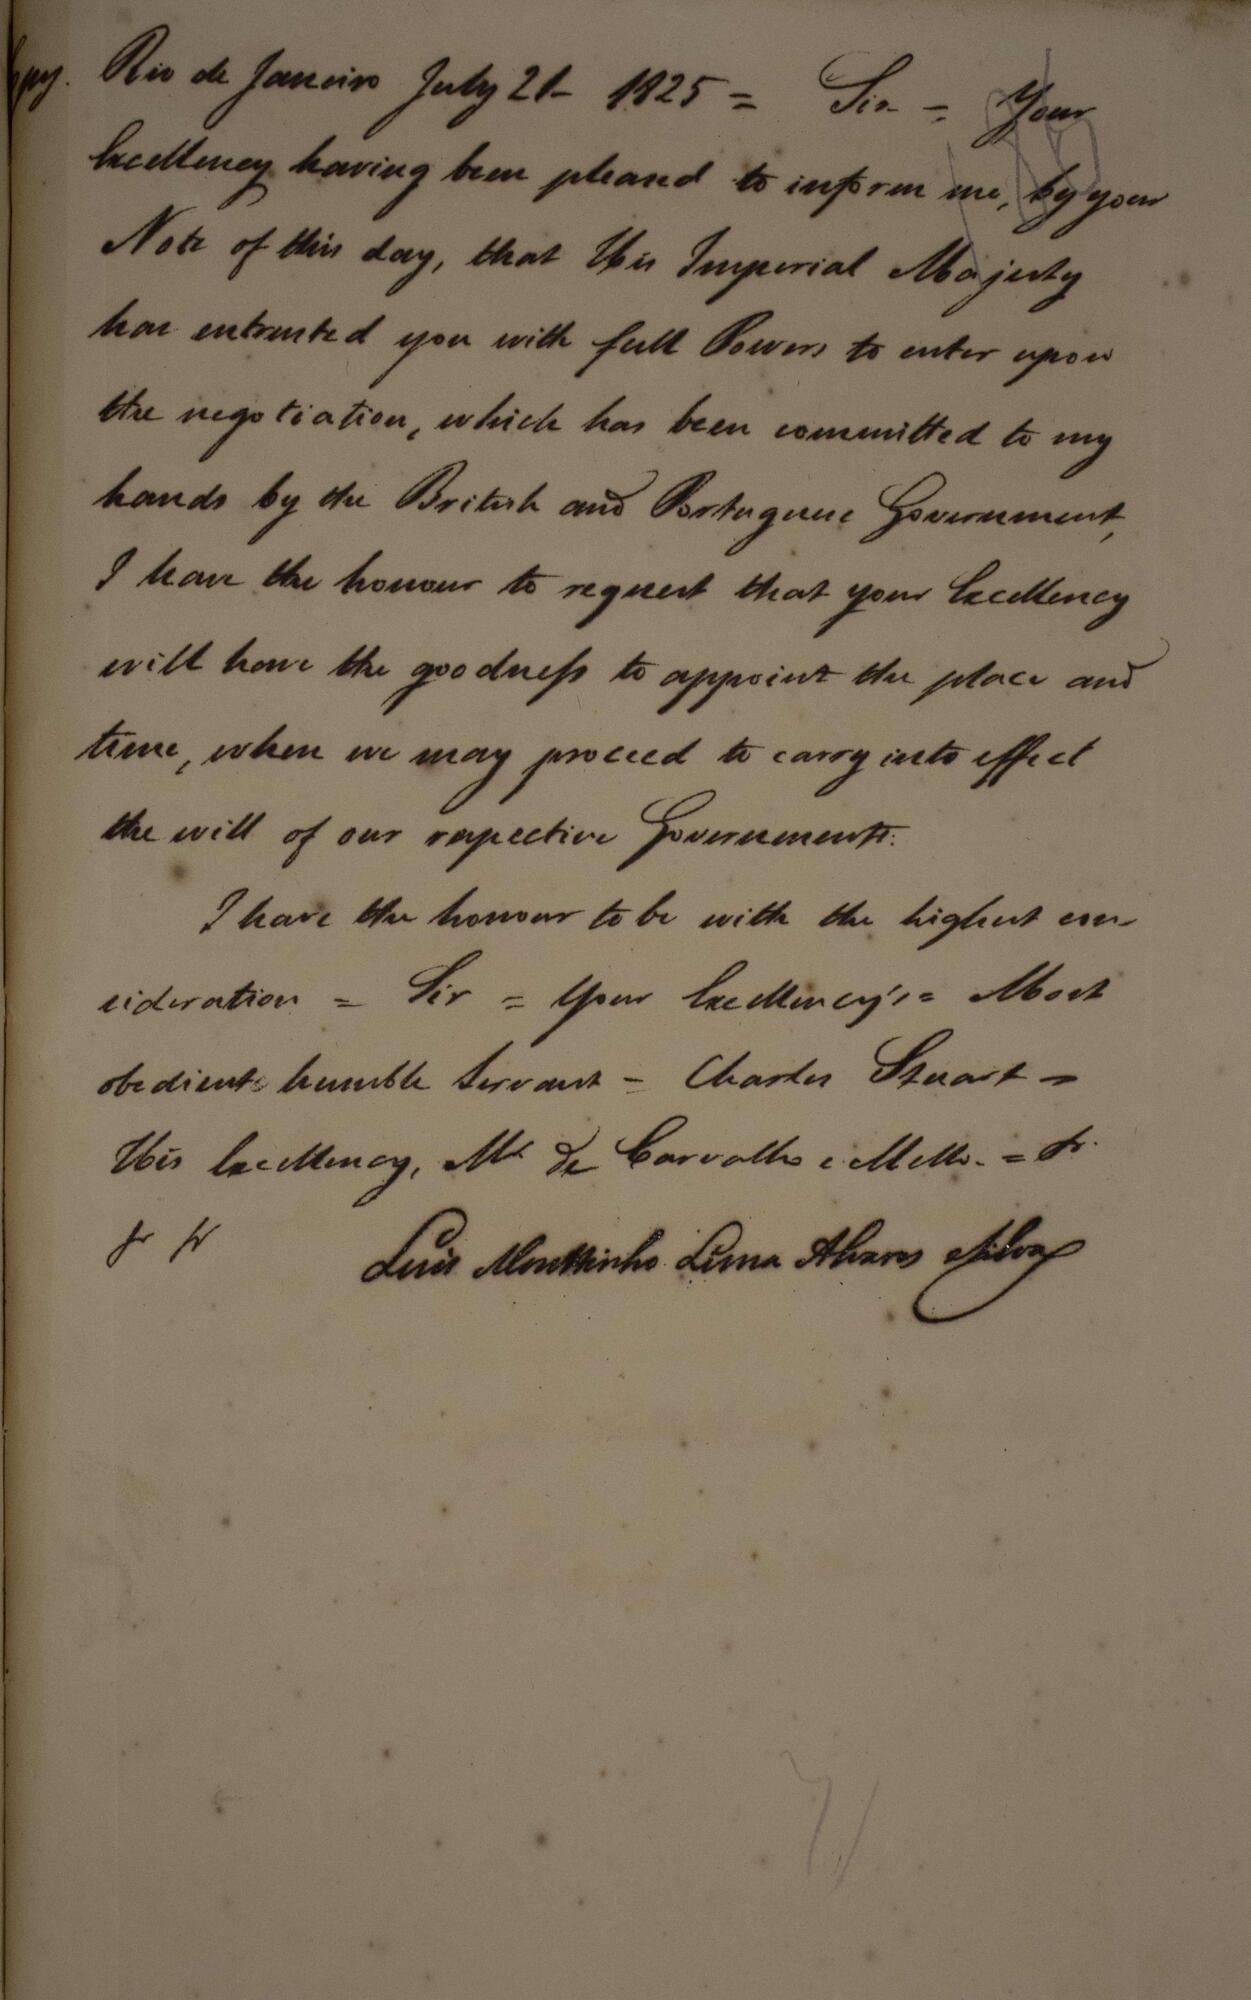 Copy. Rio de Janeiro July 21- 1825 = Sir = Your
Excellency having been pleased to inform me, by your
Note of this day, that His Imperial Majesty
has entrusted you with full Powers to enter upon
the negotiation, which has been committed to my
hands by the British and Portuguese Government,
I have the honour to request that your Excellency
will have the goodneſs to appoint the place and
time, when we may proceed to carry into effect
the will of our respective Governments.
I have the honour to be with the highest con-
sideration = Sir = Your Excellency's = Most
obedient humble Servant - Charles Stuart =
His Excellency, Mr de Carvalho e Mello. =
Luis Moutinho Lima Alvares e Silva